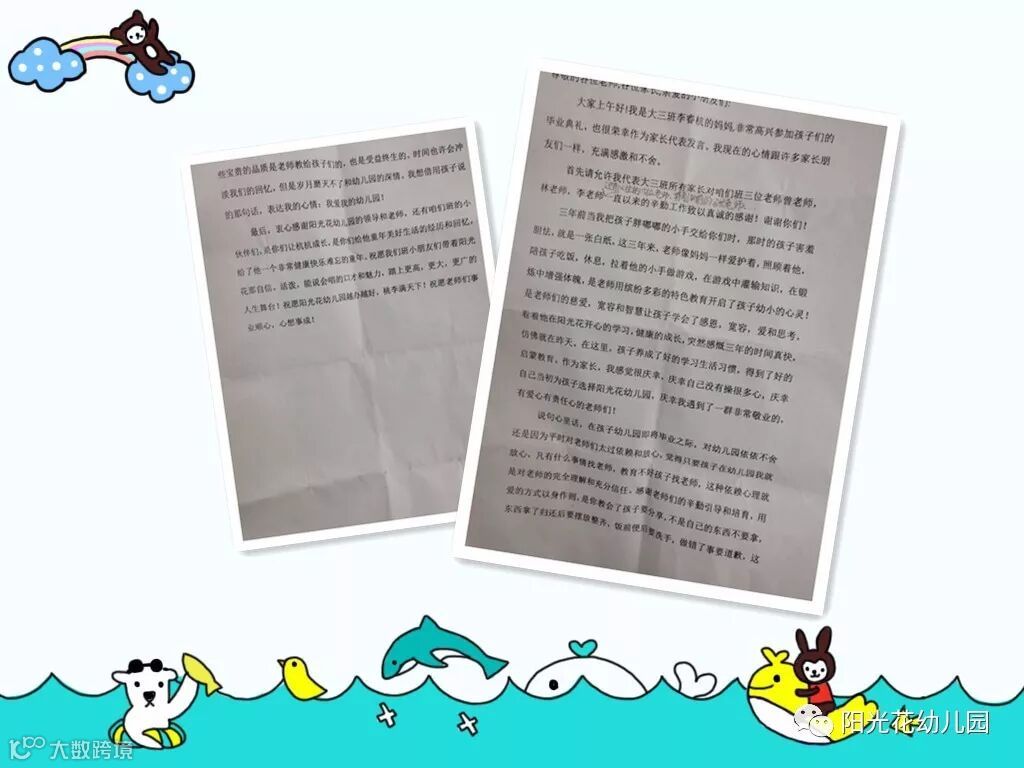 尊敬的各位老师,各位家长,亲爱的小朋友们:
大家上午好!我是大三班李春杭的妈妈,非常高兴参加孩子们的
毕业典礼,也很荣幸作为家长代表发言。我现在的心情跟许多家长朋
友们一样,充满感激和不舍。
首先请允许我代表大三班所有家长对咱们班三位老师曾老师,
林老师,李老师一直以来的辛勤工作致以真诚的感谢!谢谢你们!
三年前当我把孩子胖嘟嘟的小手交给你们时,那时的孩子害羞
胆怯,就是一张白纸,这三年来,老师像妈妈一样爱护着,照顾着他,
陪孩子吃饭,休息,拉着他的小手做游戏,在游戏中灌输知识,在锻
炼中增强体魄,是老师用缤纷多彩的特色教育开启了孩子幼小的心灵!
是老师们的慈爱,宽容和智慧让孩子学会了感恩,宽容,爱和思考,
看着他在阳光花开心的学习,健康的成长,突然感慨三年的时间真快,
仿佛就在昨天,在这里,孩子养成了好的学习生活习惯,得到了好的
启蒙教育。作为家长,我感觉很庆幸,庆幸自己没有操很多心,庆幸
自己当初为孩子选择阳光花幼儿园,庆幸我遇到了一群非常敬业的,
有爱心有责任心的老师们!
说句心里话,在孩子幼儿园即将毕业之际,对幼儿园依依不舍
还是因为平时对老师们太过依赖和放心,觉得只要孩子在幼儿园我就
放心,凡有什么事情找老师,教育不好孩子找老师,这种依赖心理就
是对老师的完全理解和充分信任。感谢老师们的辛勤引导和培育,用
爱的方式以身作则,是你教会了孩子要分享,不是自己的东西不要拿,
东西拿了归还后要摆放整齐,饭前便后要洗手,做错了事要道歉,这
些宝贵的品质是老师教给孩子们的,也是受益终生的,时间也许会冲
淡我们的回忆,但是岁月磨灭不了和幼儿园的深情。我想借用孩子说
的那句话,表达我的心情:我爱我的幼儿园!
最后,衷心感谢阳光花幼儿园的领导和老师,还有咱们班的小
伙伴们,是你们让杭杭成长,是你们给他童年美好生活的经历和回忆,
给了他一个非常健康快乐难忘的童年。祝愿我们班小朋友们带着阳光
花那自信,活泼,能说会唱的口才和魅力,踏上更高,更大,更广的
人生舞台!祝愿阳光花幼儿园越办越好,桃李满天下!祝愿老师们事
业顺心,心想事成!
阳光花幼儿园
大数跨境